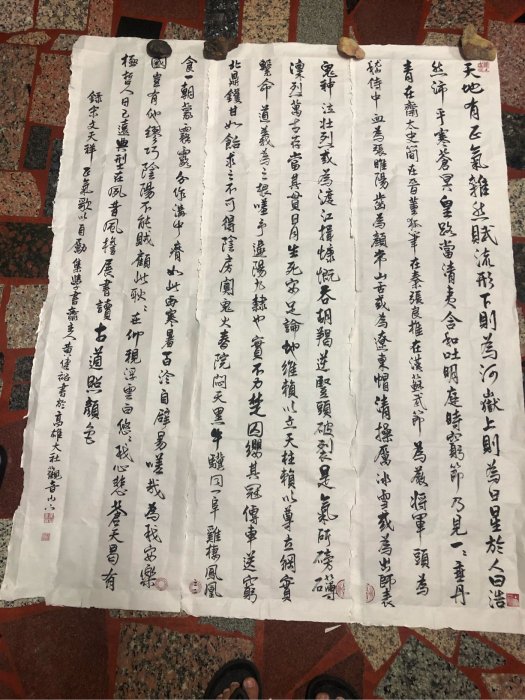 天地有正氣雜然賦流形下則為河嶽上則為日星於人曰浩
然沛乎塞蒼冥皇路當清夷含和吐明庭時窮節乃見一一垂丹
青在齊太史簡在晉董狐筆在秦張良椎在漢蘇武節為嚴將軍頭為
嵇侍中血為張睢陽齒為顏常山舌或為遼東帽清操厲冰雪或為出師表
鬼神泣壯烈或為渡江楫慷慨吞胡羯逆豎頭破裂是氣所磅礴
凜烈萬古存當其貫日月生死安足論地維賴以立天柱賴以尊三綱實
繫命道義為之根嗟予遘陽九隸也實不力楚囚纓其冠傳車送窮
北鼎鑊甘如飴求之不可得陰房闃鬼火春院閟天黑牛驥同一皁雞棲鳳凰
食一朝蒙霧露分作溝中瘠如此再寒暑百沴自辟易嗟哉為我安樂
國豈有他繆巧陰陽不能賊顧此耿耿在仰視浮雲白悠悠我心悲蒼天曷有
極哲人日已遠典型在夙昔風簷展書讀古道照顏色
錄宋文天祥正氣歌以自勵集書齋主人黃健裕書於高雄大社觀音山下